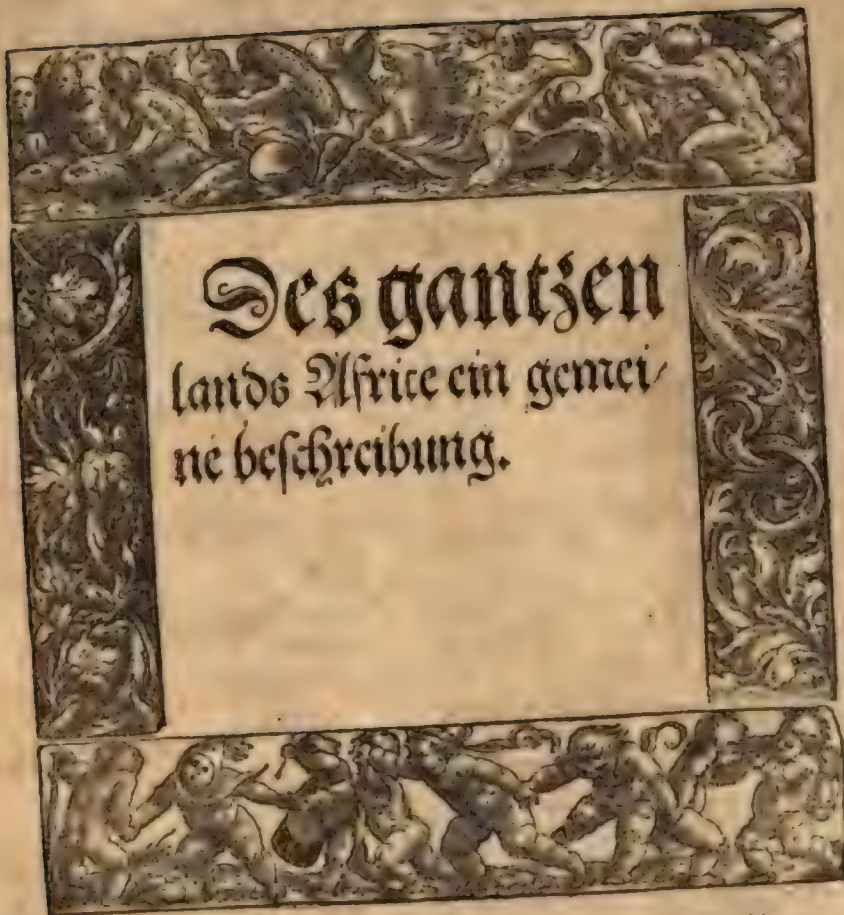 Des gantzen
lands Africe ein gemei/
ne beschreibung.